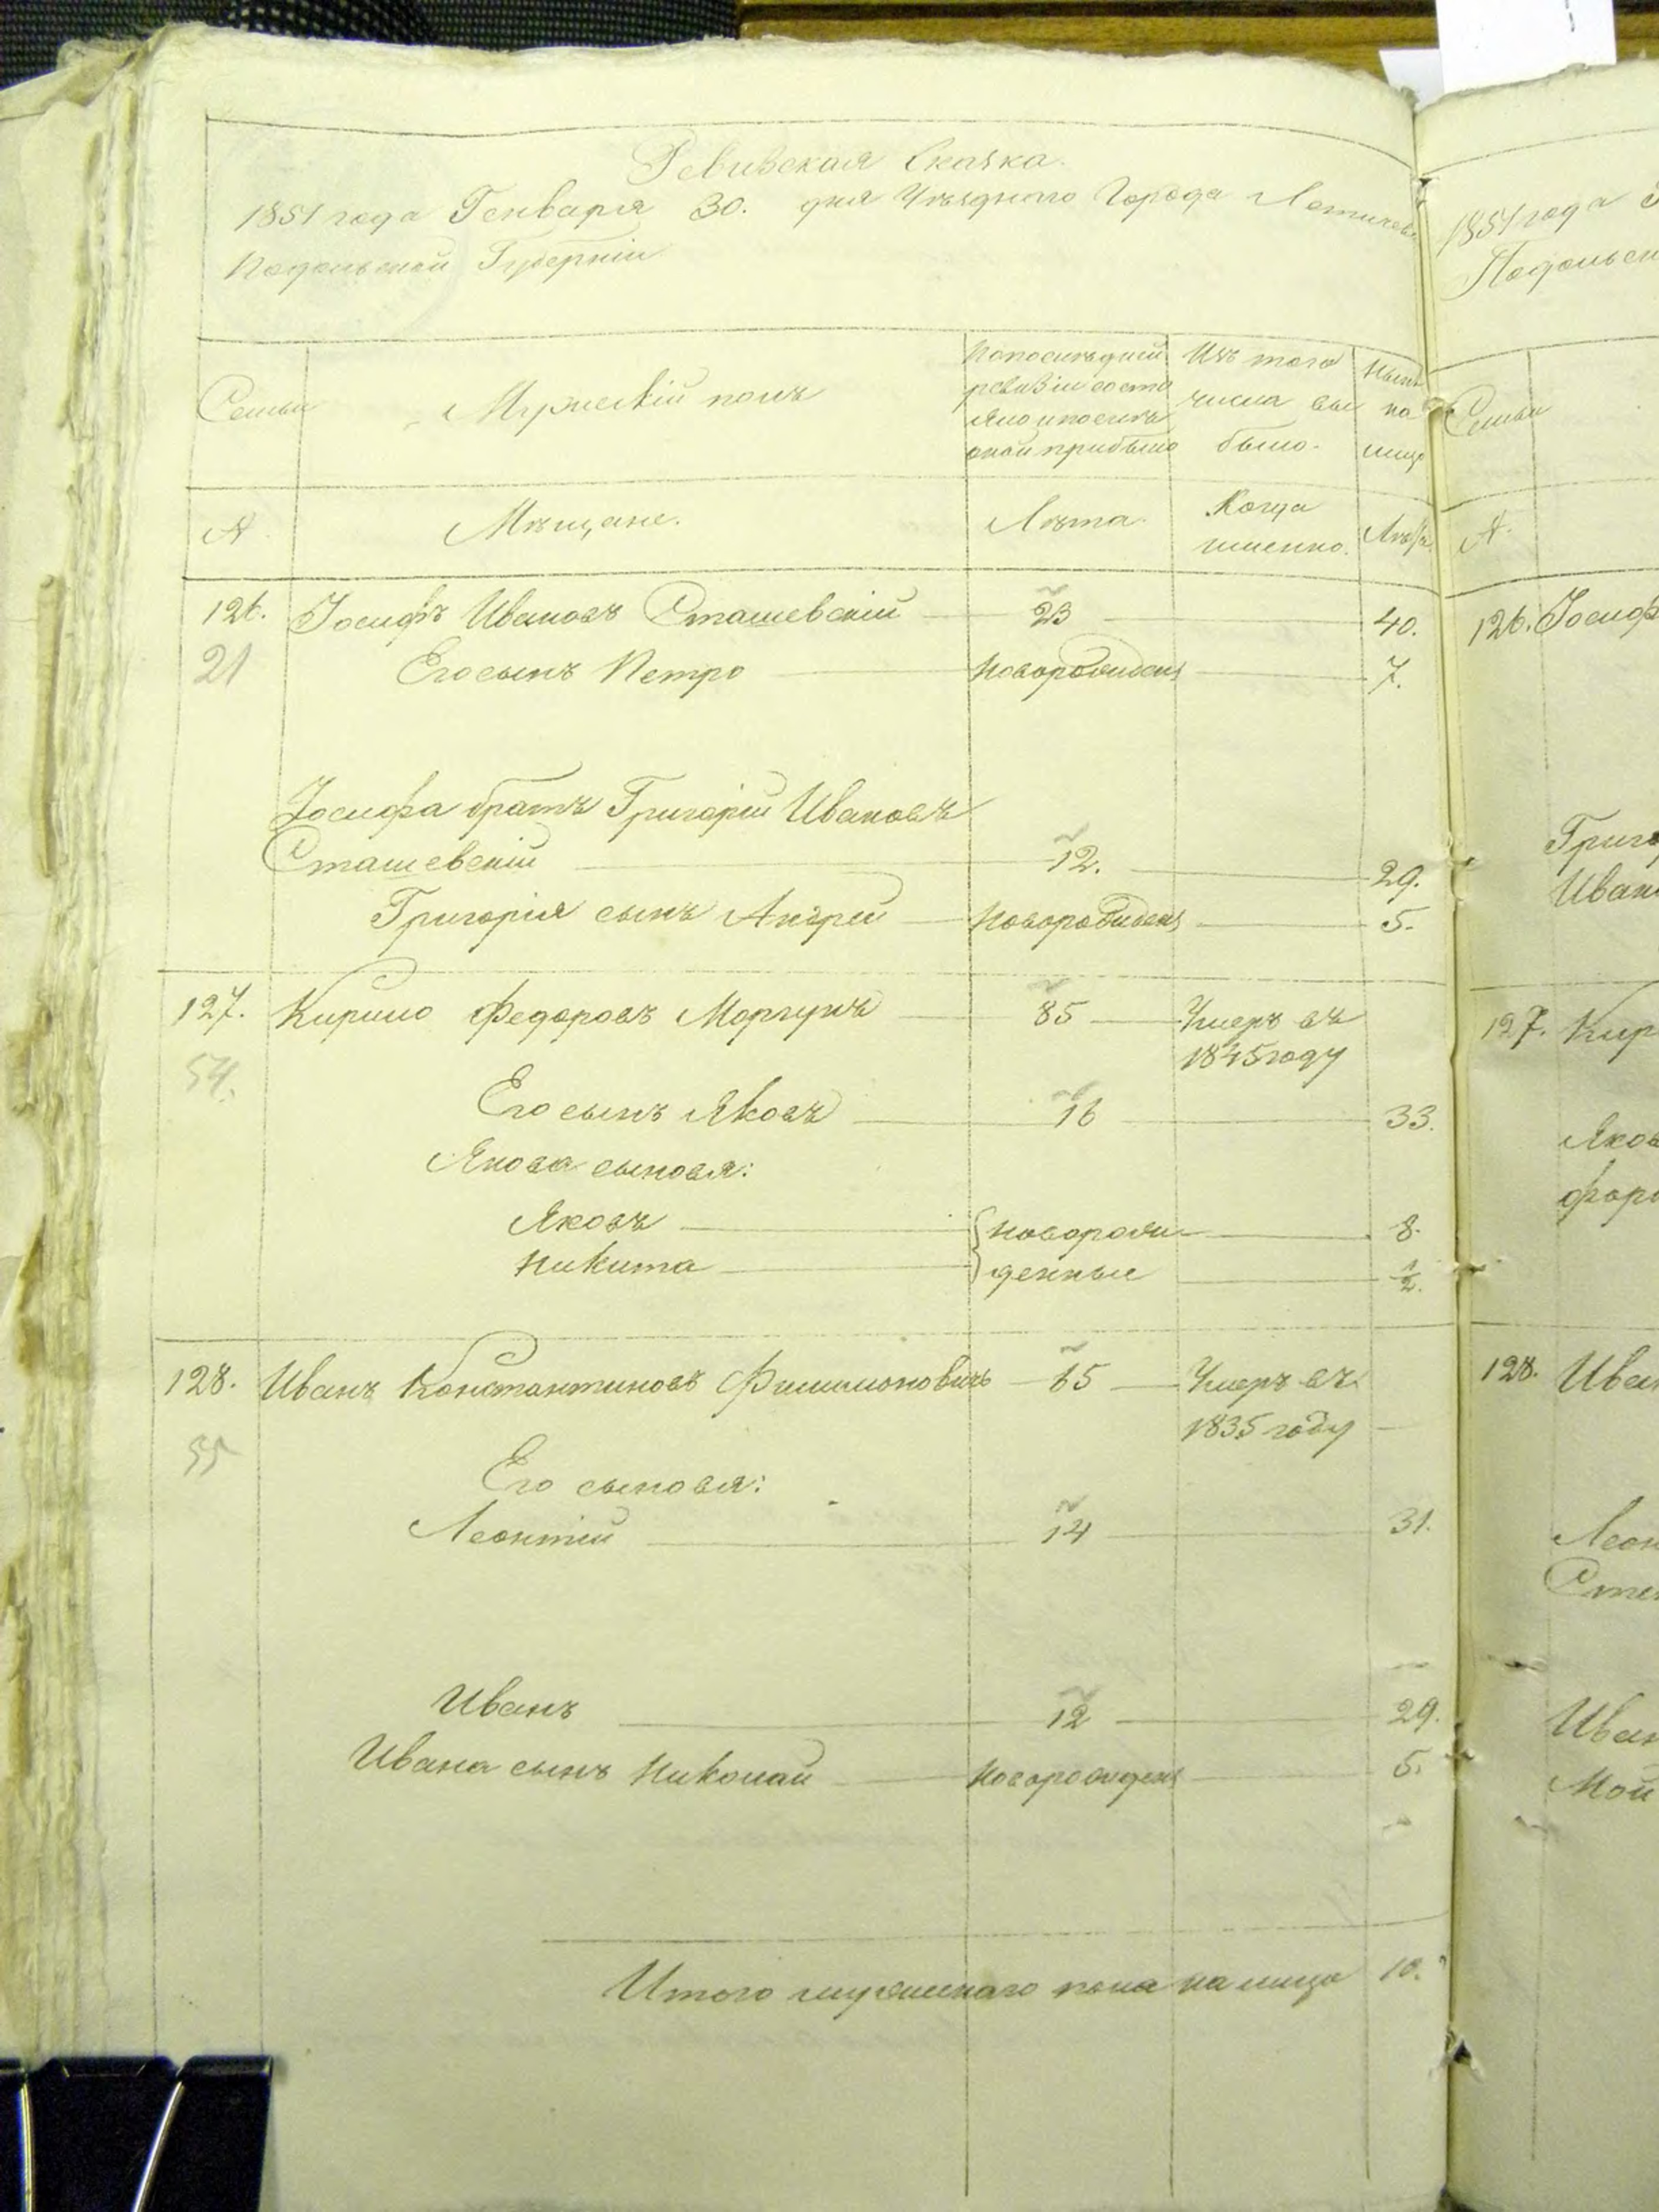 Ревизская Сказка.
1851 года Генваря 30. дня Уѣзднаго Города Летичева
Подольской Губерніи
Семьи
Мужескій полъ
Попослѣдней ревизіи состояло и послѣ оной прибыло
Изъ того числа выбыло.
Нынѣ на лицо
№.
Мѣщане.
Лѣта.
Когда именно.
Лѣта.
126. Іосифъ Ивановъ Сташевскій 23 40.
21 Его сынъ Петро новорожденъ 7.
Іосифа братъ Григорій Ивановъ
Сташевскій 12. 29.
Григорія сынъ Андрей новорожденъ 5.
127. Кирило Федоровъ Моргунъ 85 Умеръ въ
1845 году
54.
Его сынъ Яковъ 16 33.
Якова сыновя:
Яковъ новорож- 8.
Никита денные ½.
128. Иванъ Константиновъ Филимоновичъ 65 Умеръ въ
1835 году
55
Его сыновя:
Леонтій 14 31.
Иванъ 12 29.
Ивана сынъ Николай новорожденъ 5.
Итого мужескаго пола на лицо 10.
1851 года
Подольск
Семьи
№.
126. Іосиф
Григо
Иван
127. Кир
Яков
128. Иван
Леон
Иван